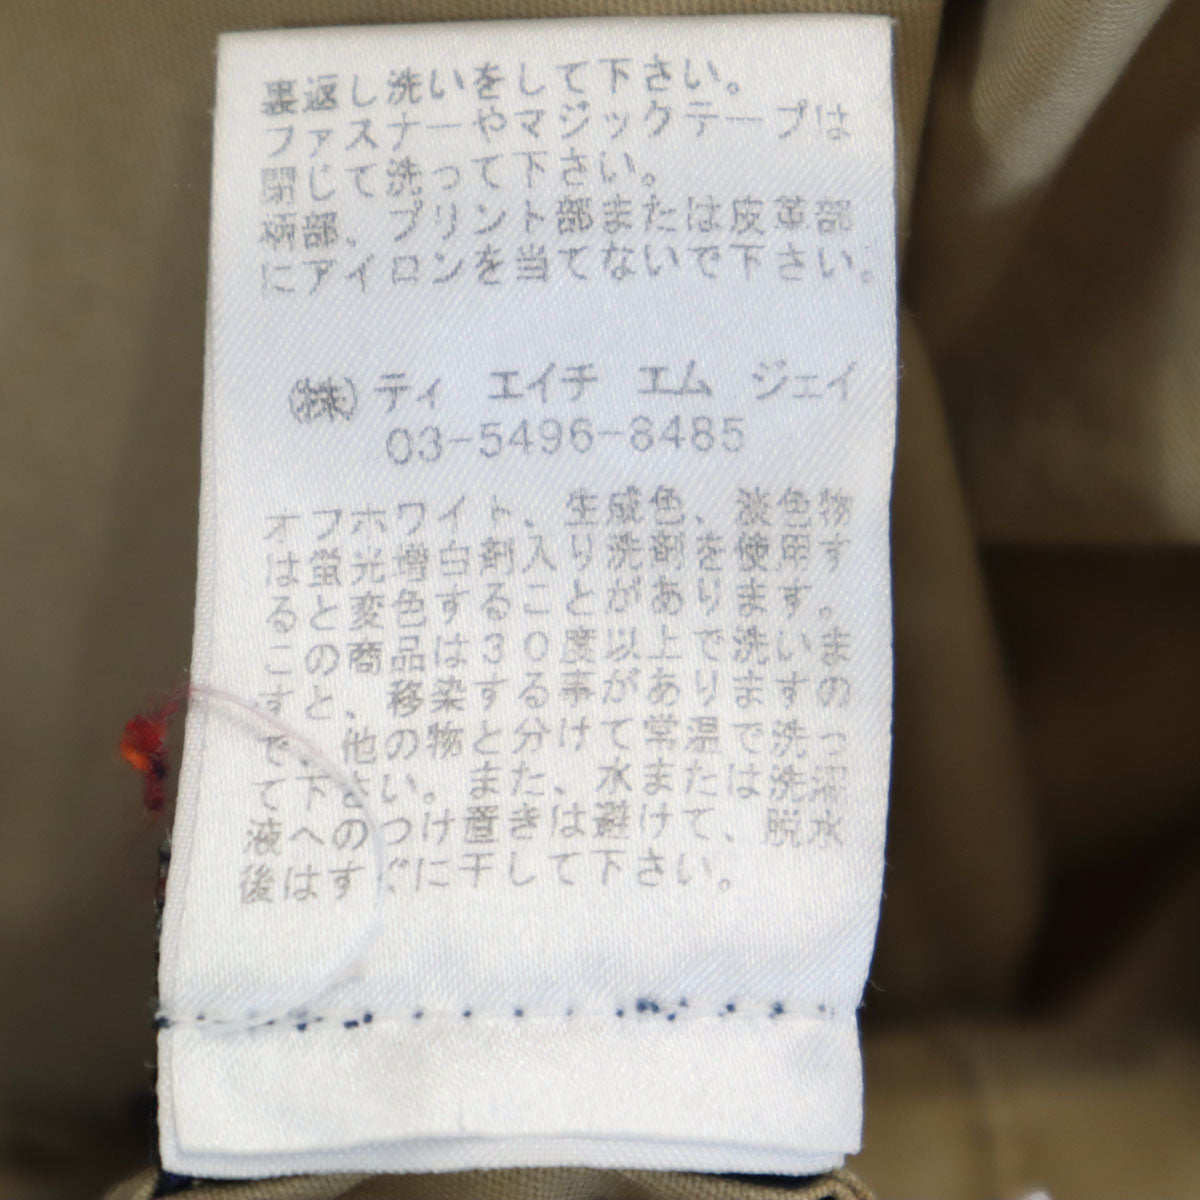 裏返し洗いをして下さい。
ファスナーやマジックテープは
閉じて洗って下さい。
柄部、プリント部または皮革部
にアイロンを当てないで下さい。
(株)ティ エイチ エム ジェイ
03-5496-8485
オフホワイト、生成色、淡色物
は蛍光増白剤入り洗剤を使用す
ると変色することがあります。
この商品は30度以上で洗いま
すと、移染する事がありますの
で、他の物と分けて常温で洗っ
て下さい。また、水または洗濯
液へのつけ置きは避けて、脱水
後はすぐに干して下さい。